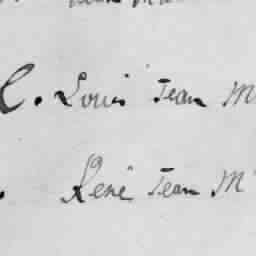 C. Louis Jean M
René Jean M